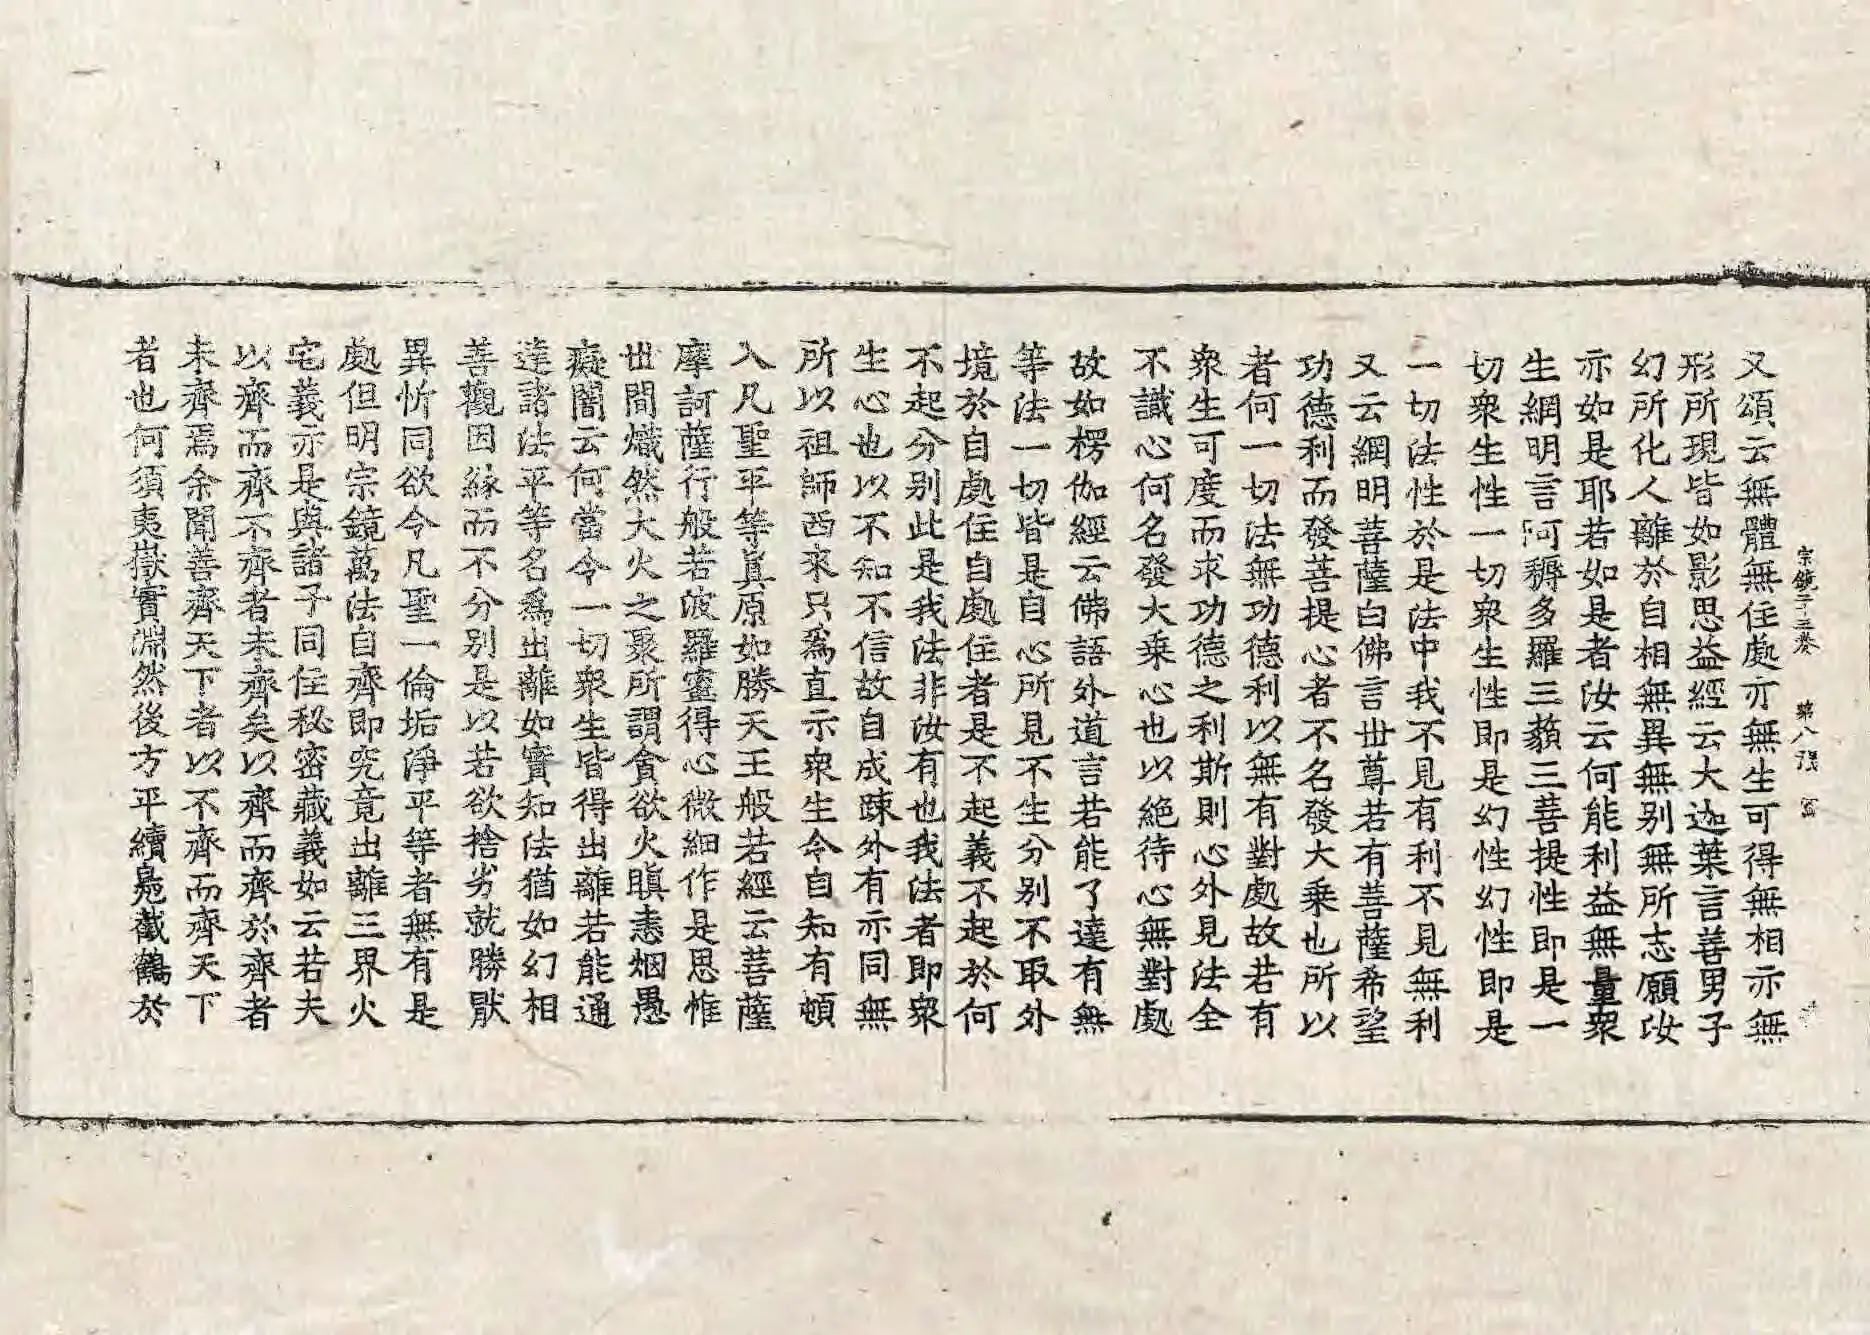 宗鏡三十三卷 第八張
又頌云無體無住處亦無生可得無相亦無
形所現皆如影思益經云大迦葉言善男子
幻所化人離於自相無異無別無所志願汝
亦如是耶若如是者汝云何能利益無量衆
生網明言阿耨多羅三藐三菩提性即是一
切衆生性一切衆生性即是幻性幻性即是
一切法性於是法中我不見有利不見無利
又云網明菩薩白佛言世尊若有菩薩希望
功德利而發菩提心者不名發大乘也所以
者何一切法無功德利以無有對處故若有
衆生可度而求功德之利斯則心外見法全
不識心何名發大乘心也以絶待心無對處
故如楞伽經云佛語外道言若能了達有無
等法一切皆是自心所見不生分別不取外
境於自處住自處住者是不起義不起於何
不起分別此是我法非汝有也我法者即衆
生心也以不知不信故自成踈外有亦同無
所以祖師西來只爲直示衆生令自知有頓
入凡聖平等眞原如勝天王般若經云菩薩
摩訶薩行般若波羅蜜得心微細作是思惟
世間熾然大火之聚所謂貪欲火瞋恚烟愚
癡闇云何當令一切衆生皆得出離若能通
達諸法平等名爲出離如實知法猶如幻相
善觀因緣而不分別是以若欲捨劣就勝猒
異忻同欲令凡聖一倫垢淨平等者無有是
處但明宗鏡萬法自齊即究竟出離三界火
宅義亦是與諸子同住秘密藏義如云若夫
以齊而齊不齊者未齊矣以齊而齊於齊者
未齊焉余聞善齊天下者以不齊而齊天下
者也何須夷嶽實淵然後方平續鳧截鶴於